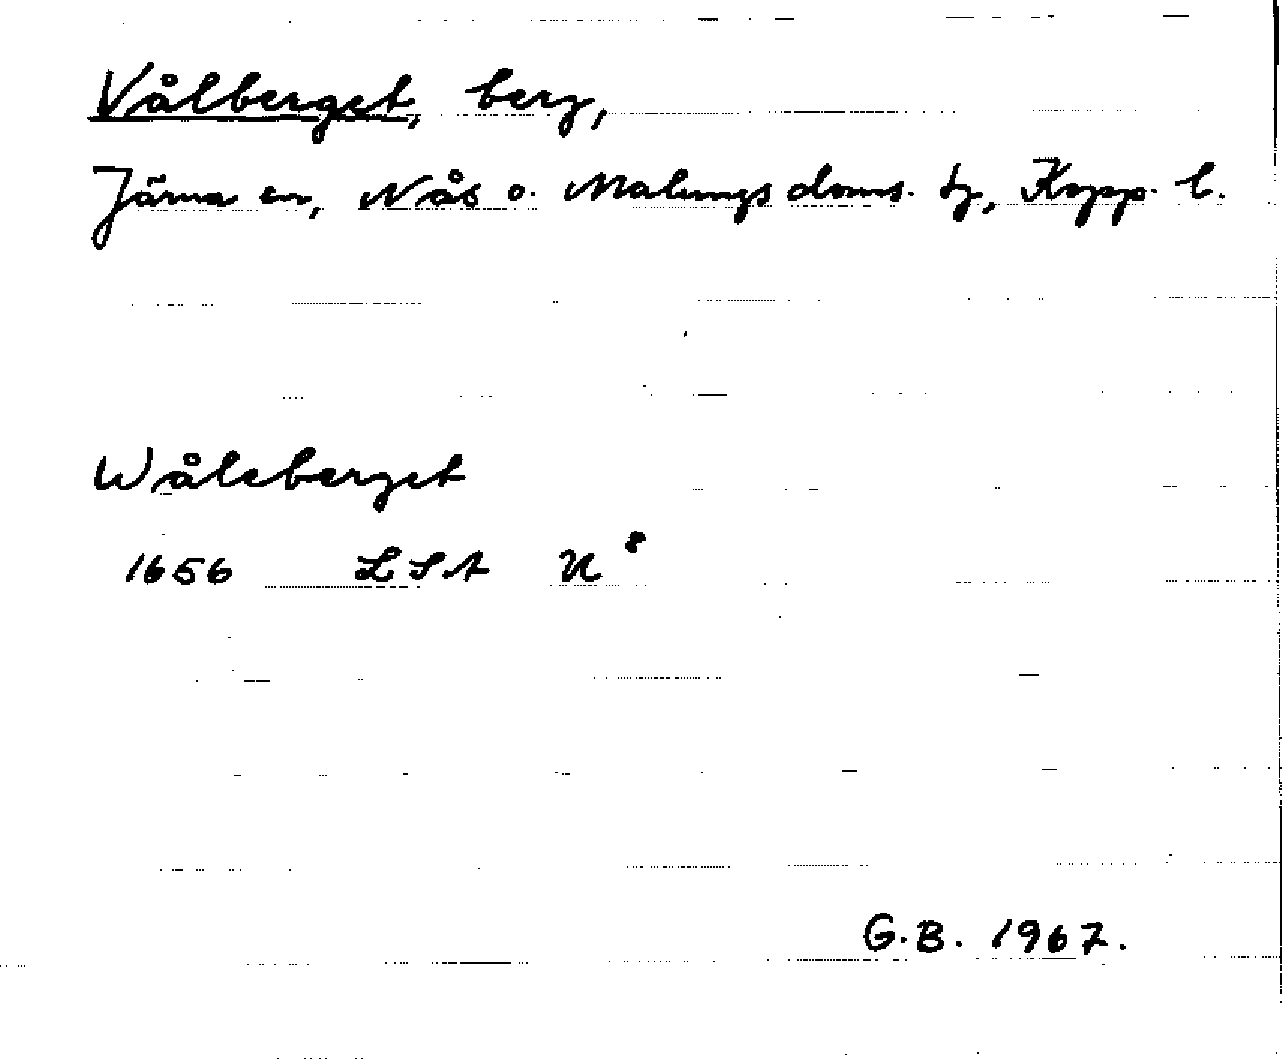 Vålberget, berg,
Järna sn, Nås o. Malungs doms. tg, Kopp. l.
Wåleberget
1656 LSA N 8
G.B. 1967.